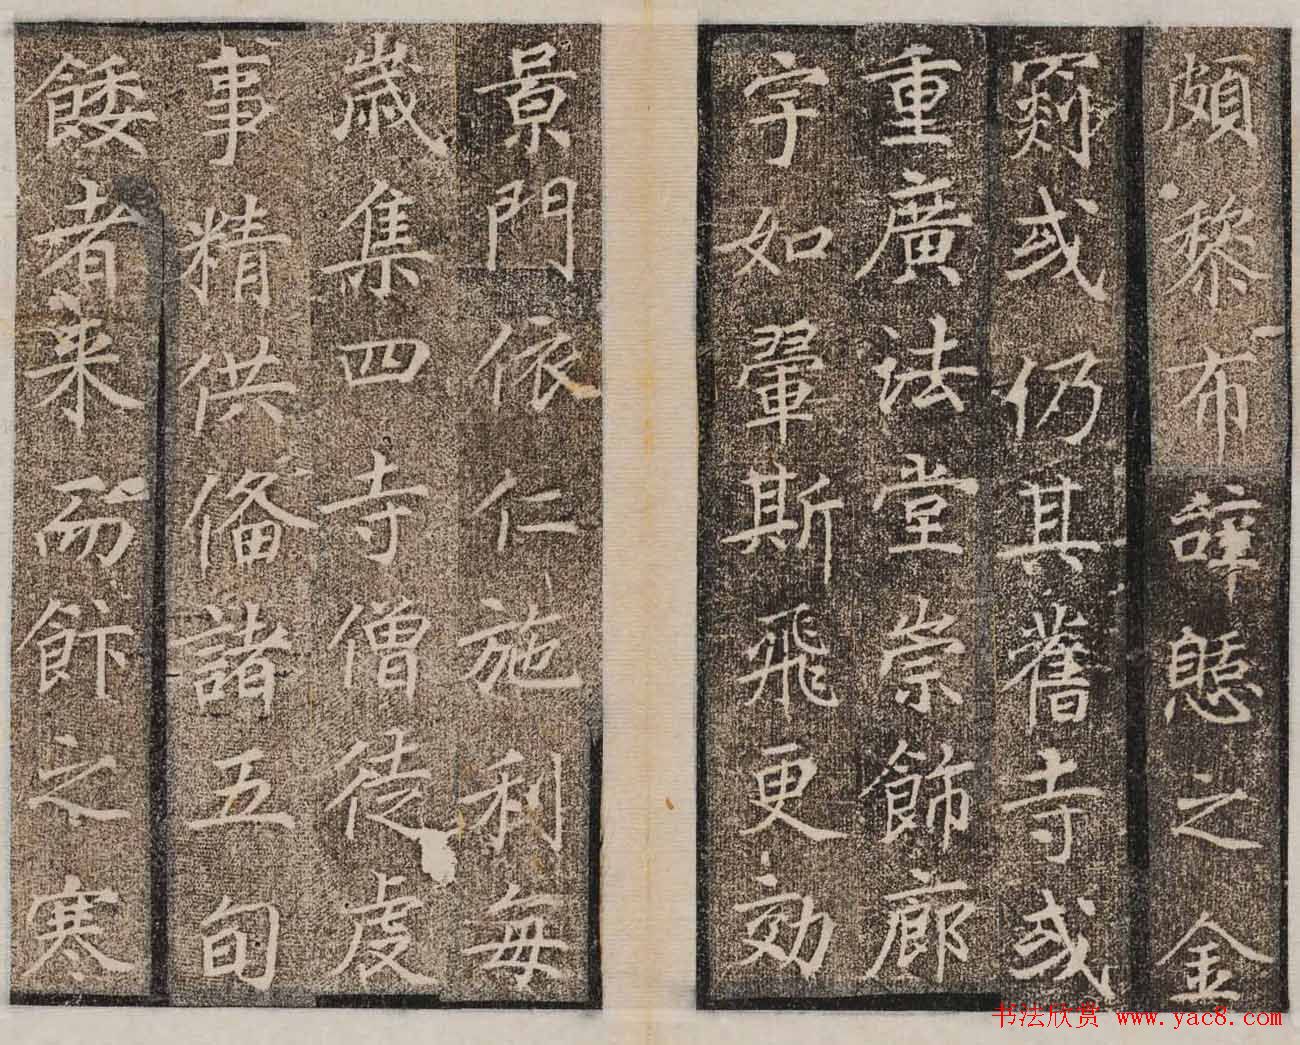 頗黎布諱懸之金
剎或仍其舊寺或
重廣法堂崇飾廊
宇如翬斯飛更効
景門依仁施利每
歲集四寺僧徒虔
事精供備諸五旬
餧者来而飰之寒
书法欣赏 www.yac8.com